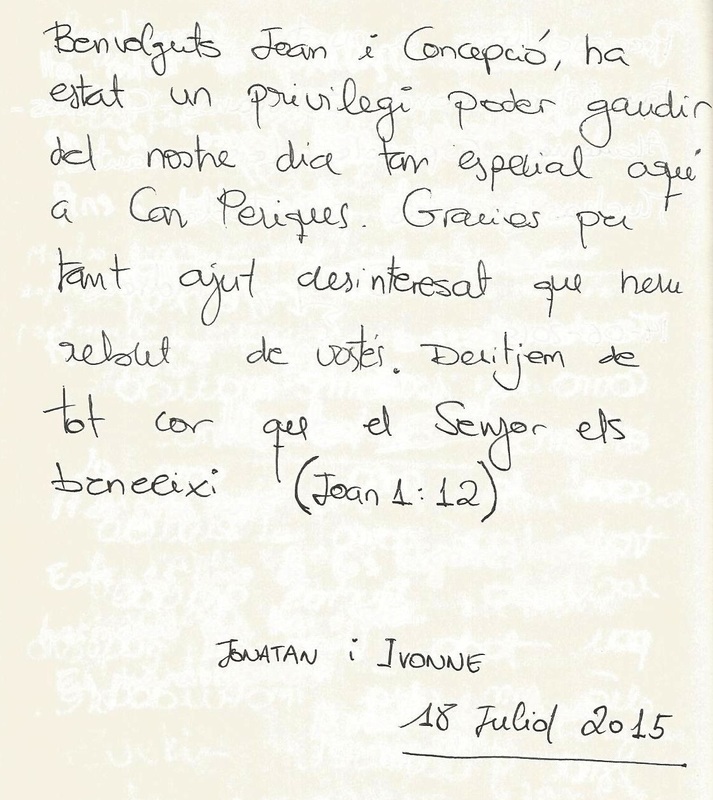 Benvolguts Joan i Concepció, ha
estat un privilegi poder gaudir
del nostre dia tan especial aquí
a Can Periques. Gracies per
tant ajut desinteresat que hem
rebut de vostés. Desitjem de
tot cor que el Senyor els
beneeixi (Joan 1:12)
JONATAN i IVONNE
18 Juliol 2015